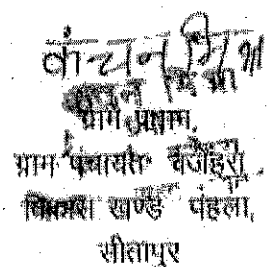 कंचन मिश्रा
ग्राम प्रधान,
ग्राम पंचायत
विकास खण्ड पहला,
सीतापुर